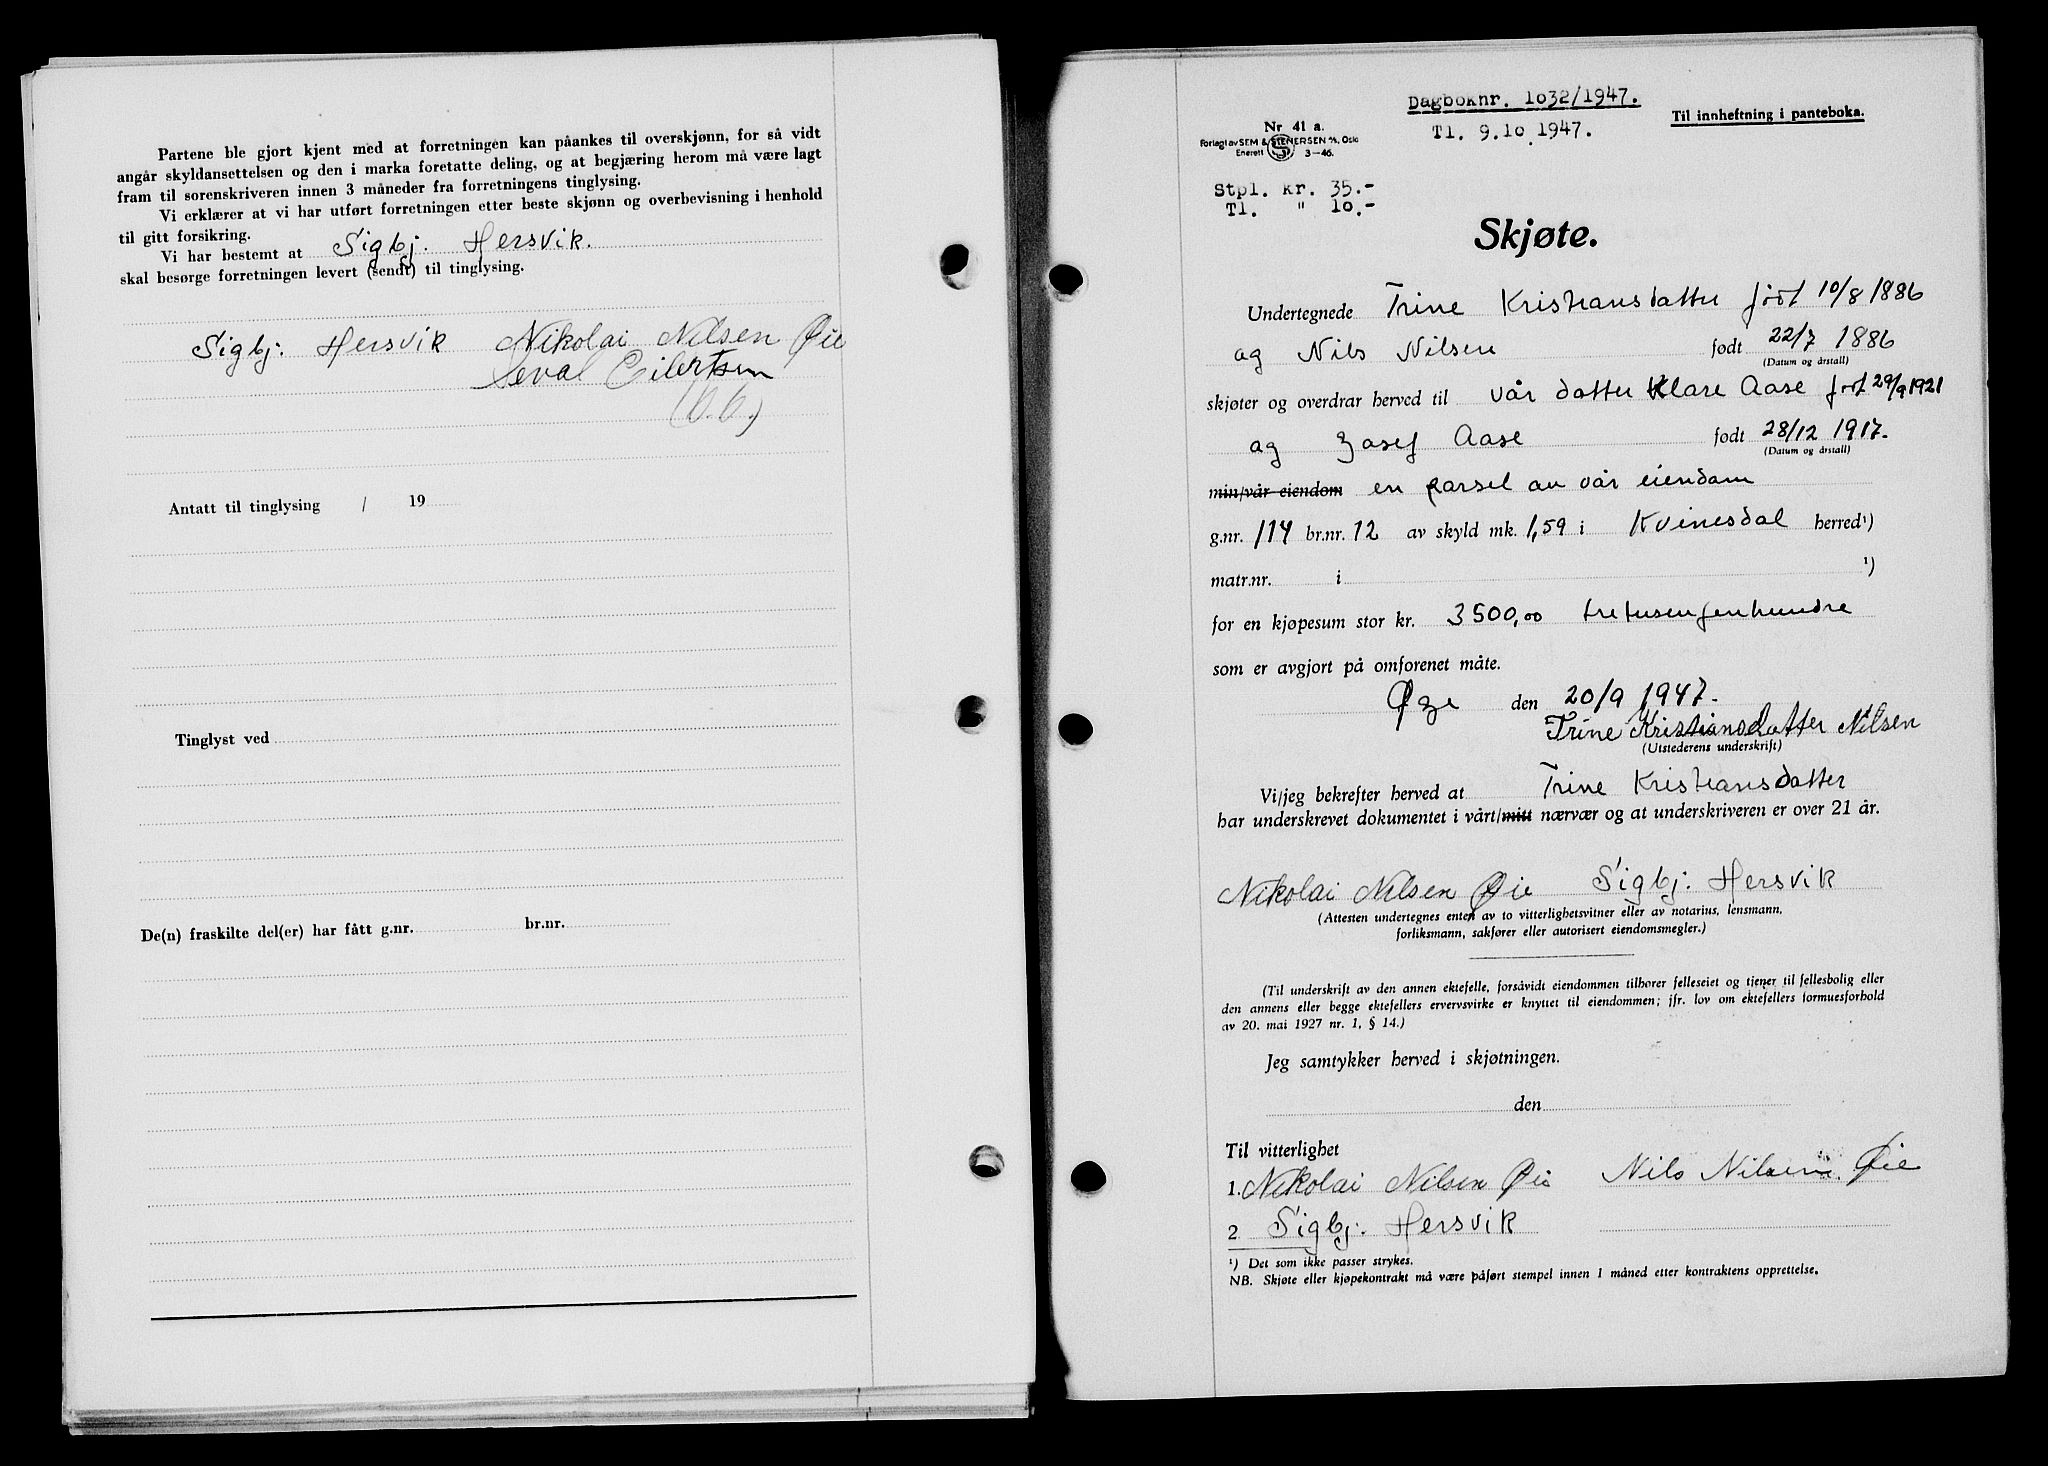 Partene ble gjort kjent med at forretningen kan påankes til overskjønn, for så vidt
angår skyldansettelsen og den i marka foretatte deling, og at begjæring herom må være lagt
fram til sorenskriveren innen 3 måneder fra forretningens tinglysing.
Vi erklærer at vi har utført forretningen etter beste skjønn og overbevisning i henhold
til gitt forsikring.
Vi har bestemt at Sigbj. Hersvik.
skal besørge forretningen levert (sendt) til tinglysing.
Sigbj. Hersvik Nikolai Nilsen Øie
Seval Eilertsen
Antatt til tinglysing / 19
Tinglyst ved
De(n) fraskilte del(er) har fått g.nr. br.nr.
Dagboknr. 1032/1947.
Tl. 9.10 1947.
Til innheftning i panteboka.
Nr 41 a.
Forlagt av SEM & STENERSEN A/S, Oslo
Enerett S 3-46.
Stpl. kr. 35.-
Tl. " 10.-
Skjøte.
Undertegnede Trine Kristiansdatter født 10/8 1886
og Nils Nilsen født 22/7 1886
(Datum og årstall)
skjøter og overdrar herved til vår datter Klare Aase født 29/9 1921
og Josef Aase født 28/12 1917.
(Datum og årstall)
min/vår eiendom en parsel av vår eiendom
g.nr. 114 br.nr. 12 av skyld mk. 1,59 i Kvinesdal herred¹)
matr.nr. i ¹)
for en kjøpesum stor kr. 3500,00 tretusenfemhundre
som er avgjort på omforenet måte.
Øye den 20/9 1947.
Trine Kristiansdatter Nilsen
(Utstederens underskrift)
Vi/jeg bekrefter herved at Trine Kristiansdatter
har underskrevet dokumentet i vårt/mitt nærvær og at underskriveren er over 21 år.
Nikolai Nilsen Øie Sigbj. Hersvik
(Attesten undertegnes enten av to vitterlighetsvitner eller av notarius, lensmann,
forliksmann, sakfører eller autorisert eiendomsmegler.)
(Til underskrift av den annen ektefelle, forsåvidt eiendommen tilhører felleseiet og tjener til fellesbolig eller
den annens eller begge ektefellers ervervsvirke er knyttet til eiendommen; jfr. lov om ektefellers formuesforhold
av 20. mai 1927 nr. 1, § 14.)
Jeg samtykker herved i skjøtningen.
den
Til vitterlighet
1. Nikolai Nilsen Øie Nils Nilsen Øie
2 Sigbj. Hersvik
¹) Det som ikke passer strykes.
NB. Skjøte eller kjøpekontrakt må være påført stempel innen 1 måned etter kontraktens opprettelse.